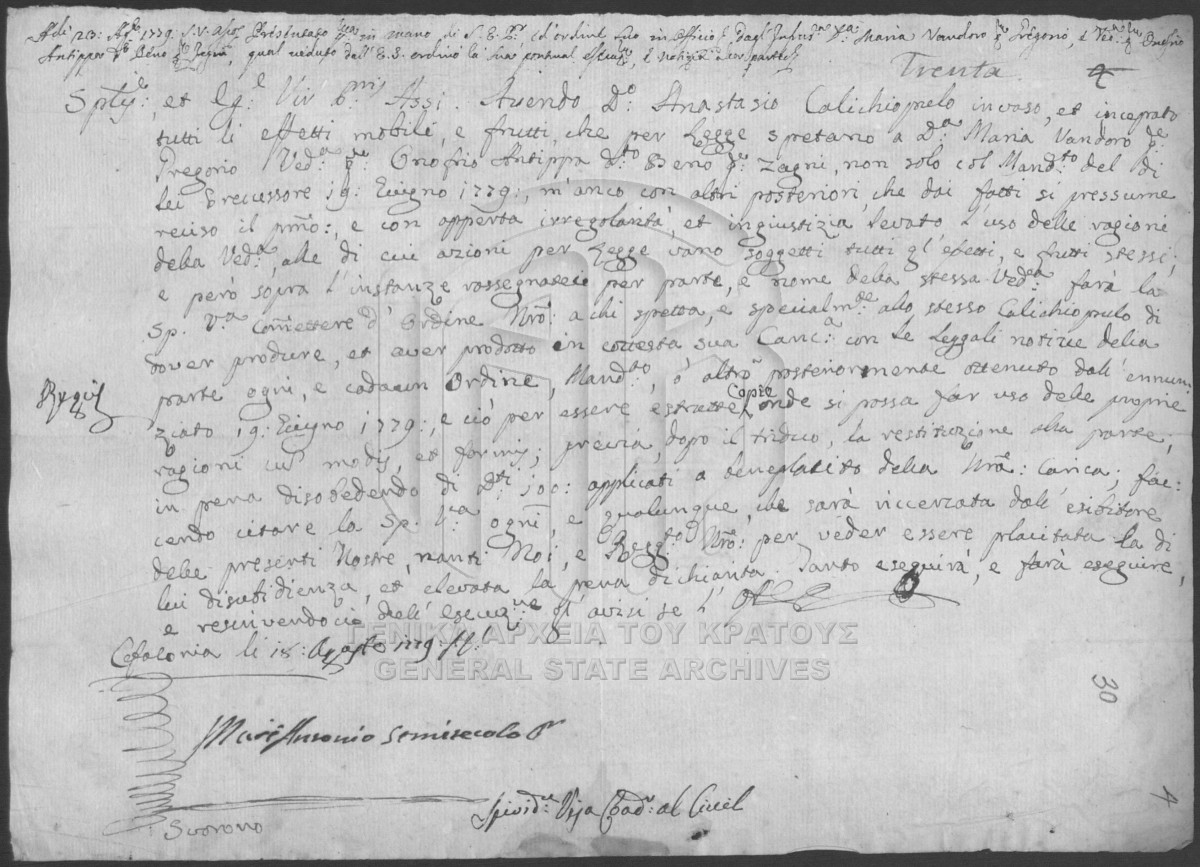 Adi 23: Agto 1779. S.V. Presentato in mano di S.E. ed ordini in officio dagl' Maria Vandoro qm Pregorio, e Onofrio
Antippa dto Beno qm Zagni, qual veduto dall' E.S. ordinò la sua pontual esecuzne, e notizia a cor parte
Trenta
et Eg.e Assi. Avendo Do Anastasio Calichiopulo invaso, et inceprato
tutti li effetti mobili, e frutti, che per Legge spetano a da Maria Vandoro qm
Pregorio Veda qm Onofrio Antippa dto Beno qm Zagni, non solo col Mandto del di
Lei Precessore 19: Giugno 1779:, m'anco con altri posteriori, che dai fatti si pressume
reciso il pmo:, e con apperta irregolarità, et ingiustizia levato l'uso delle ragioni
della Veda, alle di cui azioni per Legge vano soggetti tutti gl' efetti, e frutti stessi;
e però sopra l'instanze rassegnateci per parte, e nome della stessa Veda farà la
Sp. Va Comettere d' Ordine Nro: a chi spetta, e specialmte allo stesso Calichiopulo di
dover produre, et aver prodotto in cotesta sua Canca con le Leggali notizie della
parte ogni, e cadaun Ordine, Mandto, ò altro posteriormente ottenuto dall' ennun:
ziato 19: Giugno 1779:, e ciò per essere estratte Copie onde si possa far uso delle proprie
ragioni in modis, et formis; previa, dopo il triduo, la restituzione alla parte,
in pena disobedendo di dti 100: applicati a beneplacito della Nra: Carica; fac:
cendo citare la Sp. Va ogni, e qualunque, che sarà riccercata dall' esibitore
delle presenti Nostre, nanti Noi, e Reggto Nro: per veder essere placitata la di
lui disubidienza, et elevata la pena dichiarita. Tanto eseguirà, e farà eseguire,
e rescrivendoci dell' esecuzne gl' avisi se l'
Cefalonia li 18: Agosto 1779: S.V.
Marc Antonio Semitecolo Pr
Suorono
Spiridn Vija Coadr al Civil
30
ΓΕΝΙΚΑ ΑΡΧΕΙΑ ΤΟΥ ΚΡΑΤΟΥΣ
GENERAL STATE ARCHIVES